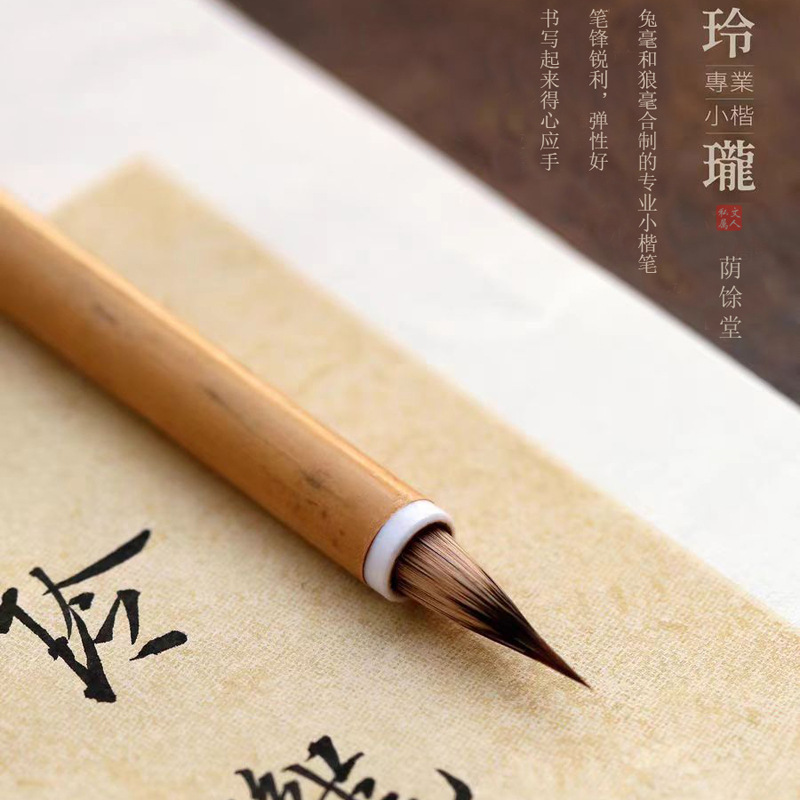 玲
專業
小楷
瓏
文人
私属
荫馀堂
兔毫和狼毫合制的专业小楷笔
笔锋锐利，弹性好
书写起来得心应手
玲